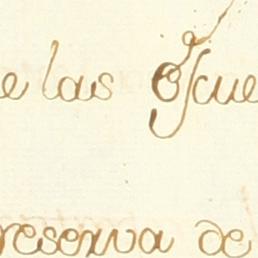 e las Escue
reserva de